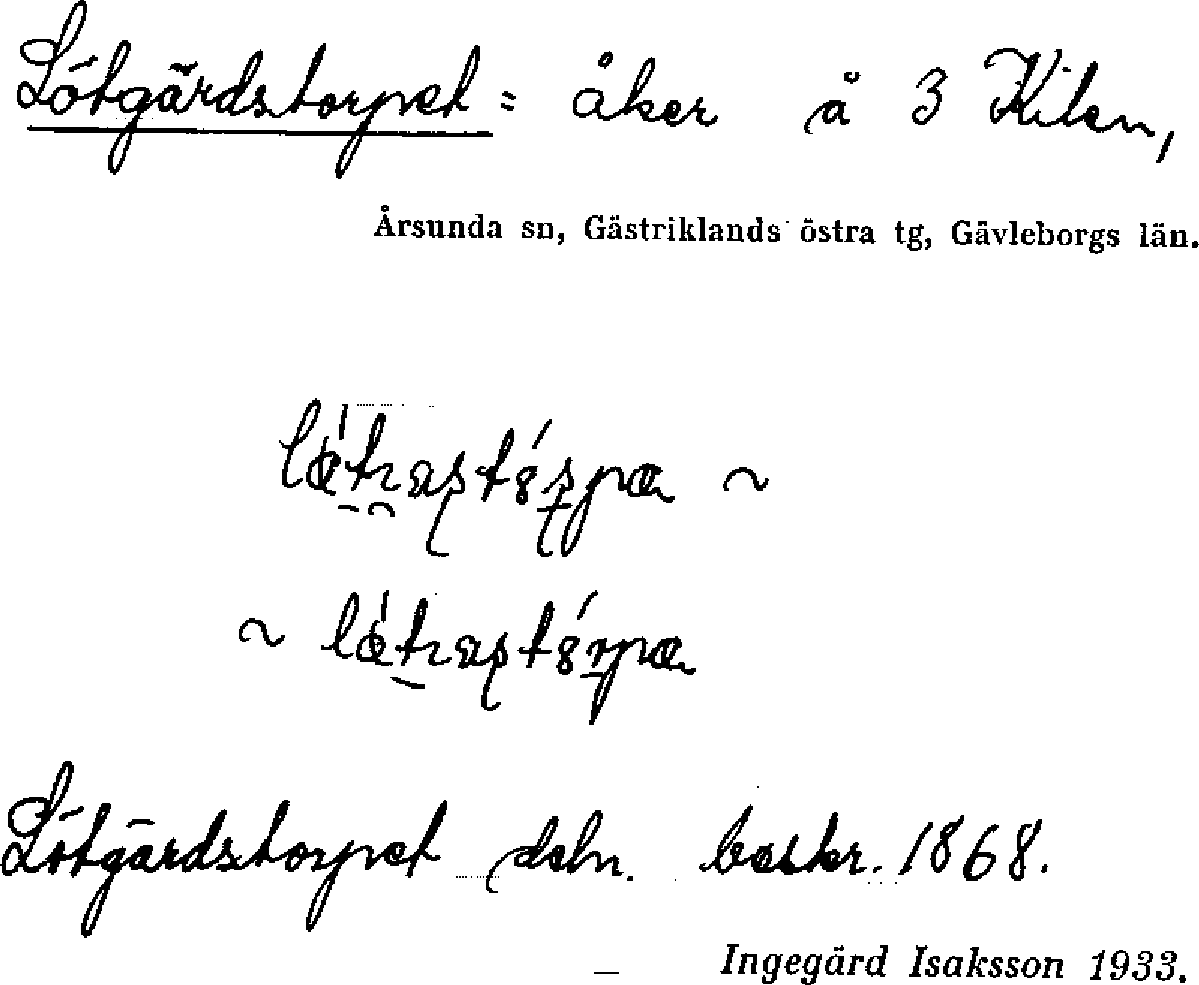 Lötgärdstorpet = åker å 3 Kilen,
Årsunda sn, Gästriklands östra tg, Gävleborgs län.
~
~
Lötgärdstorpet deln. beskr. 1868.
Ingegärd Isaksson 1933.